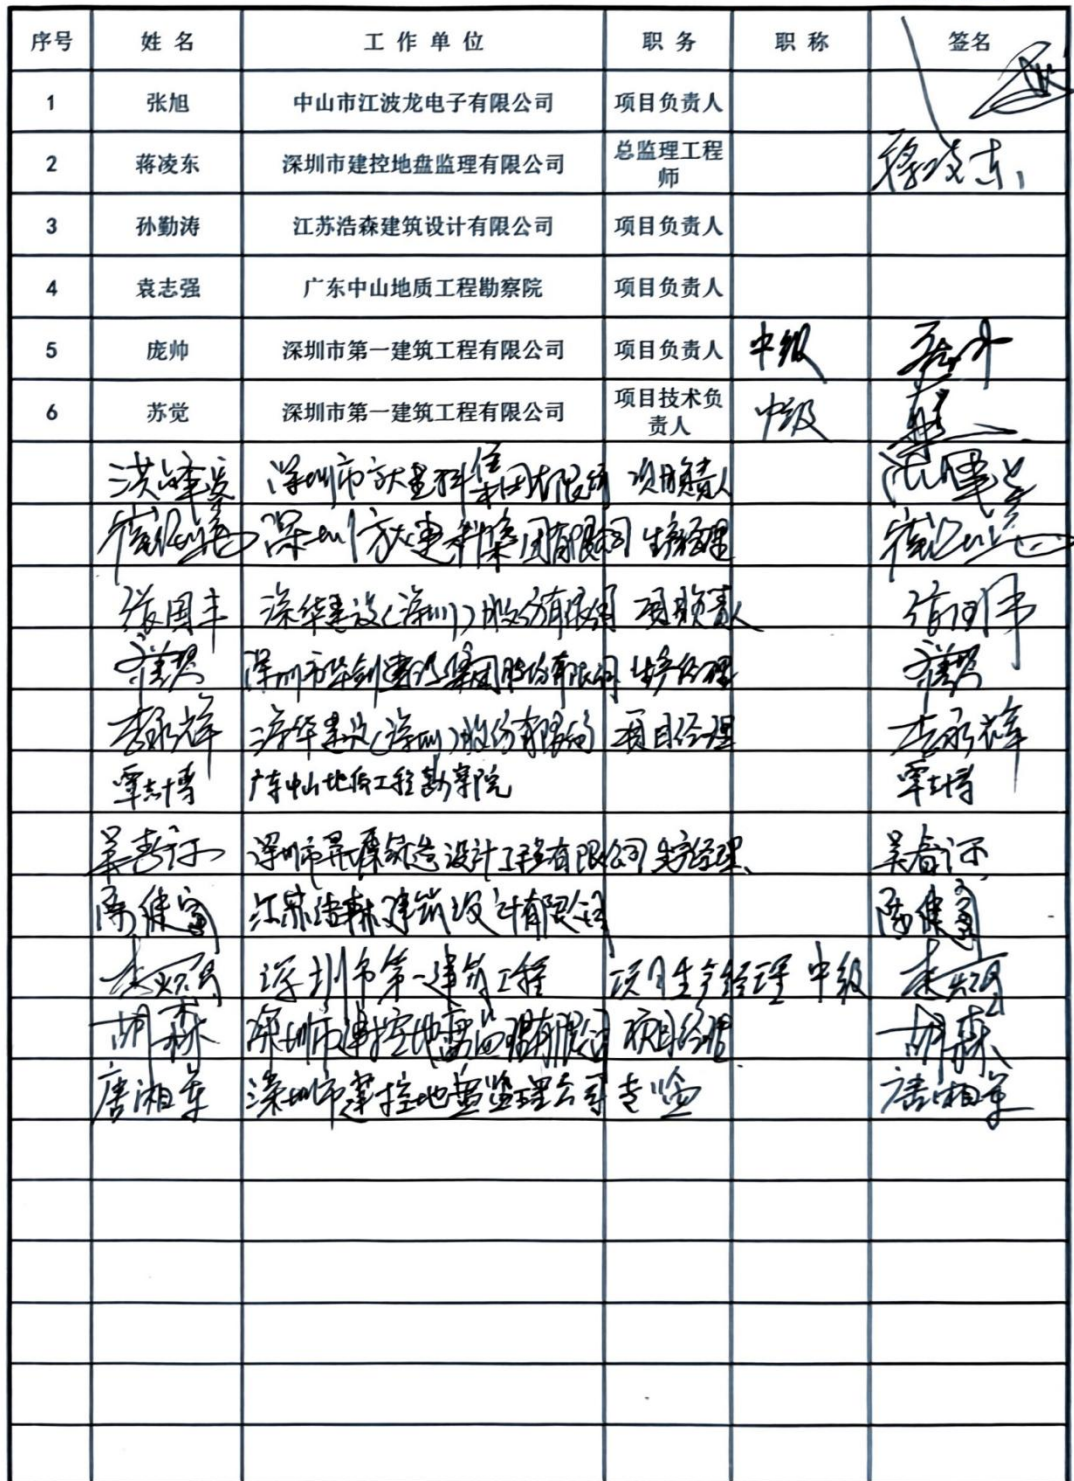 序号 姓名 工作单位 职务 职称 签名
1 张旭 中山市江波龙电子有限公司 项目负责人
2 蒋凌东 深圳市建控地盘监理有限公司 总监理工程师 蒋凌东
3 孙勤涛 江苏浩森建筑设计有限公司 项目负责人
4 袁志强 广东中山地质工程勘察院 项目负责人
5 庞帅 深圳市第一建筑工程有限公司 项目负责人 中级 庞帅
6 苏觉 深圳市第一建筑工程有限公司 项目技术负责人 中级
深圳市方大建科集团有限公司 项目负责人
深圳方大建科集团有限公司 生产经理
张国丰 深华建设(深圳)股份有限公司 项目负责人
深圳市华剑建设集团股份有限公司 生产经理
李永辉 深华建设(深圳)股份有限公司 项目经理 李永辉
覃志博 广东中山地质工程勘察院 覃志博
吴春 深圳市 筑造设计工程有限公司 生产经理 吴春
江苏浩森建筑设计有限公司
李 深圳市第一建筑工程 项目生产经理 中级 李
胡森 深圳市建控地盘监理有限公司 项目经理 胡森
唐湘军 深圳市建控地盘监理公司 专监 唐湘军